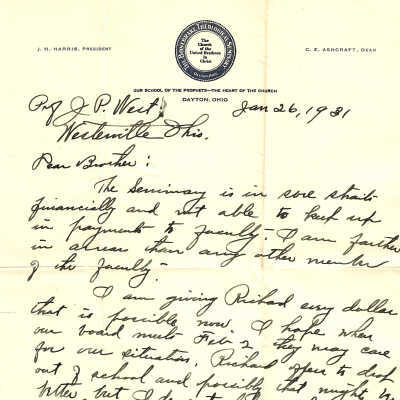 J. H. HARRIS, PRESIDENT
THE BONEBRAKE THEOLOGICAL SEMINARY
The
Church of the
United Brethren
in
Christ
C. E. ASHCRAFT, DEAN
OUR SCHOOL OF THE PROPHETS—THE HEART OF THE CHURCH
DAYTON, OHIO
Prof J. P. West,
Jan 26, 1931
Westerville Ohio.
Dear Brother:
The Seminary is in sore straits
financially and not able to keep up
in payments to faculty— I am farther
in arrears than any other member
of the faculty—
I am giving Richard every dollar
that is possible now. I hope when
our board meets Feb 2, they may care
for our situation. Richard offers to drop
out of school and possibly that might be
better, but I do